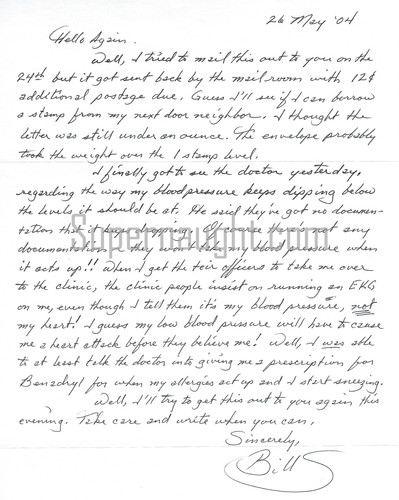 26 May '04
Hello Again.
Well, I tried to mail this out to you on the
24th but it got sent back by the mail room with 12¢
additional postage due. Guess I'll see if I can borrow
a stamp from my next door neighbor. I thought the
letter was still under an ounce. The envelope probably
took the weight over the 1 stamp level.
I finally got to see the doctor yesterday,
regarding the way my blood pressure keeps dipping below
the levels it should be at. He said they've got no documen-
tation that it keeps dropping. Of course there's not any
documentation – they won't take my blood pressure when
it acts up!! When I get the tier officers to take me over
to the clinic, the clinic people insist on running an EKG
on me, even though I tell them it's my blood pressure, not
my heart! I guess my low blood pressure will have to cause
me a heart attack before they believe me! Well, I was able
to at least talk the doctor into giving me a prescription for
Benadryl for when my allergies act up and I start sneezing.
Well, I'll try to get this out to you again this
evening. Take care and write when you can,
Sincerely,
Bill S
Supernaught.com